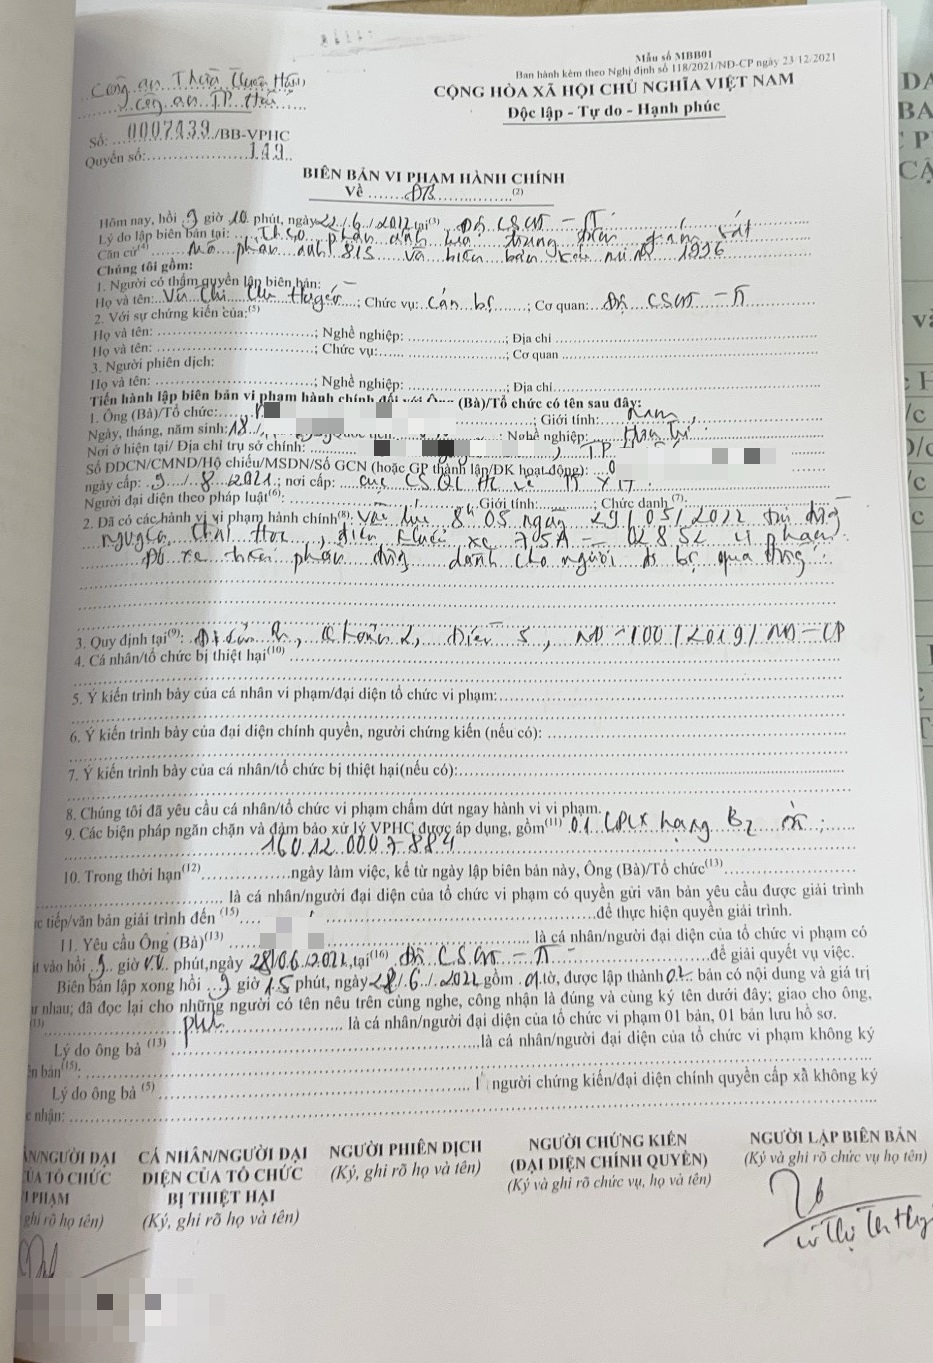 Mẫu số MBB01
Ban hành kèm theo Nghị định số 118/2021/NĐ-CP ngày 23/12/2021
CỘNG HÒA XÃ HỘI CHỦ NGHĨA VIỆT NAM
Độc lập - Tự do - Hạnh phúc
Công an Thừa Thiên Huế
Công an TP Huế
Số: 0007439/BB-VPHC
Quyển số: 149
BIÊN BẢN VI PHẠM HÀNH CHÍNH
Về ĐB (2)
Hôm nay, hồi 9 giờ 10 phút, ngày 22/6/2022 tại(3) Đội CSGT - TT
Lý do lập biên bản tại: Theo phản ánh của trung tâm giám sát
Căn cứ(4) Mã phản ánh 815 và biên bản xác minh 1996
Chúng tôi gồm:
1. Người có thẩm quyền lập biên bản:
Họ và tên: ; Chức vụ: Cán bộ ; Cơ quan: Đội CSGT - TT
2. Với sự chứng kiến của:(5)
Họ và tên: ; Nghề nghiệp: ; Địa chỉ
Họ và tên: ; Chức vụ: ; Cơ quan
3. Người phiên dịch:
Họ và tên: ; Nghề nghiệp: ; Địa chỉ
Tiến hành lập biên bản vi phạm hành chính đối với Ông (Bà)/Tổ chức có tên sau đây:
1. Ông (Bà)/Tổ chức: ; Giới tính: Nam
Ngày, tháng, năm sinh: 18/ ; Nghề nghiệp:
Nơi ở hiện tại/ Địa chỉ trụ sở chính: , TP
Số ĐDCN/CMND/Hộ chiếu/MSDN/Số GCN (hoặc GP thành lập/ĐK hoạt động): 0
ngày cấp: 9/8/2021; nơi cấp: Cục CSQLHC về TTXH
Người đại diện theo pháp luật(6): Giới tính: ; Chức danh(7):
2. Đã có các hành vi vi phạm hành chính(8): Vào lúc 8h05 ngày 29/05/2022 tại đường
Nguyễn Thái Học, điều khiển xe 75A - 02852 vi phạm:
Đỗ xe trên phần đường dành cho người đi bộ qua đường.
3. Quy định tại(9): Điểm , Khoản 2, Điều 5, NĐ - 100/2019/NĐ-CP
4. Cá nhân/tổ chức bị thiệt hại(10)
5. Ý kiến trình bày của cá nhân vi phạm/đại diện tổ chức vi phạm:
6. Ý kiến trình bày của đại diện chính quyền, người chứng kiến (nếu có):
7. Ý kiến trình bày của cá nhân/tổ chức bị thiệt hại(nếu có):
8. Chúng tôi đã yêu cầu cá nhân/tổ chức vi phạm chấm dứt ngay hành vi vi phạm.
9. Các biện pháp ngăn chặn và đảm bảo xử lý VPHC được áp dụng, gồm(11) 01 GPLX hạng B2 số:
160120007884
10. Trong thời hạn(12) ngày làm việc, kể từ ngày lập biên bản này, Ông (Bà)/Tổ chức(13)
là cá nhân/người đại diện của tổ chức vi phạm có quyền gửi văn bản yêu cầu được giải trình
c tiếp/văn bản giải trình đến (15) để thực hiện quyền giải trình.
11. Yêu cầu Ông (Bà)(13) là cá nhân/người đại diện của tổ chức vi phạm có
t vào hồi 9 giờ phút, ngày 28/06/2022, tại(16) Đội CSGT - TT để giải quyết vụ việc.
Biên bản lập xong hồi 9 giờ 15 phút, ngày /6/2022 gồm 01 tờ, được lập thành 02 bản có nội dung và giá trị
nhau; đã đọc lại cho những người có tên nêu trên cùng nghe, công nhận là đúng và cùng ký tên dưới đây; giao cho ông,
(13) là cá nhân/người đại diện của tổ chức vi phạm 01 bản, 01 bản lưu hồ sơ.
Lý do ông bà (13) là cá nhân/người đại diện của tổ chức vi phạm không ký
n bản(15):
Lý do ông bà (5) người chứng kiến/đại diện chính quyền cấp xã không ký
nhận:
N/NGƯỜI ĐẠI
ỦA TỔ CHỨC
PHẠM
ghi rõ họ tên)
CÁ NHÂN/NGƯỜI ĐẠI
DIỆN CỦA TỔ CHỨC
BỊ THIỆT HẠI
(Ký, ghi rõ họ và tên)
NGƯỜI PHIÊN DỊCH
(Ký, ghi rõ họ và tên)
NGƯỜI CHỨNG KIẾN
(ĐẠI DIỆN CHÍNH QUYỀN)
(Ký và ghi rõ chức vụ, họ và tên)
NGƯỜI LẬP BIÊN BẢN
(Ký và ghi rõ chức vụ họ tên)